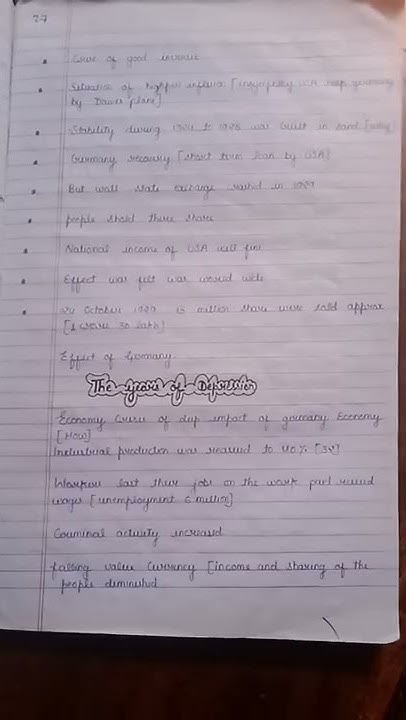 27
of good
Situation of [ USA help germany
by Dawes plane]
Stability during 1924 to 1928 was built in sand
Germany recovery [short term loan by USA]
But wall state exchange in 1929
people should there share
National income of USA fine
Effect was felt was world wide
24 October 1929 13 million share were sold approx
[1 crore 30 lakh]
Effect of Germany
The years of Depression
Economy of dep impact of germany Economy
[How]
Industrial production was to 40% [32]
lost their jobs on the work paid
wages [unemployment 6 million]
activity increased
falling value currency [income and of the
people diminished